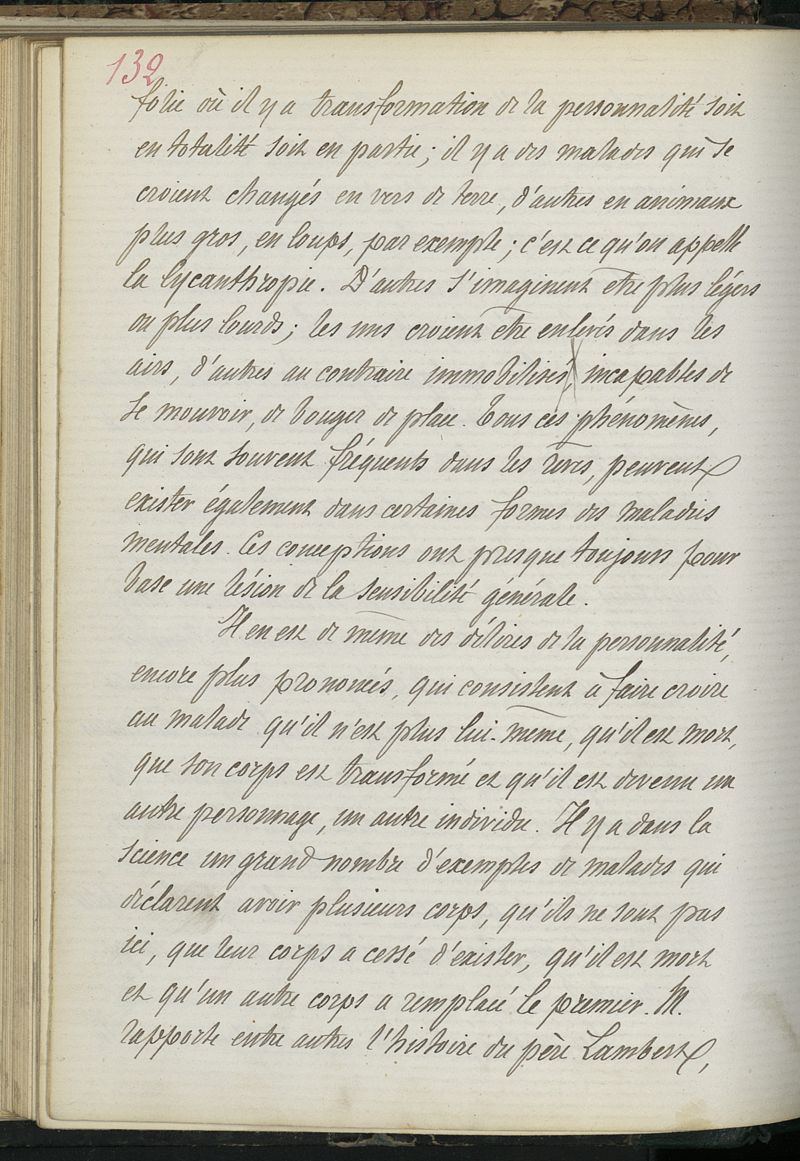 132
folie où il y a transformation de la personnalité soit
en totalité soit en partie ; il y a des malades qui se
croient changés en vers de terre, d'autres en animaux
plus gros, en loups, par exemple ; c'est ce qu'on appelle
la lycanthropie. D'autres s'imaginent être plus légers
ou plus lourds ; les uns croient être enlevés dans les
airs, d'autres au contraire immobilisés, incapables de
se mouvoir, de bouger de place. Tous ces phénomènes,
qui sont souvent fréquents dans les rêves, peuvent
exister également dans certaines formes des maladies
mentales. Ces conceptions ont presque toujours pour
base une lésion de la sensibilité générale.
Il en est de même des délires de la personnalité,
encore plus prononcés, qui consistent à faire croire
au malade qu'il n'est plus lui-même, qu'il est mort,
que son corps est transformé et qu'il est devenu un
autre personnage, un autre individu. Il y a dans la
science un grand nombre d'exemples de malades qui
déclarent avoir plusieurs corps, qu'ils ne sont pas
ici, que leur corps a cessé d'exister, qu'il est mort
et qu'un autre corps a remplacé le premier. M.
rapporte entre autres l'histoire du père Lambert,